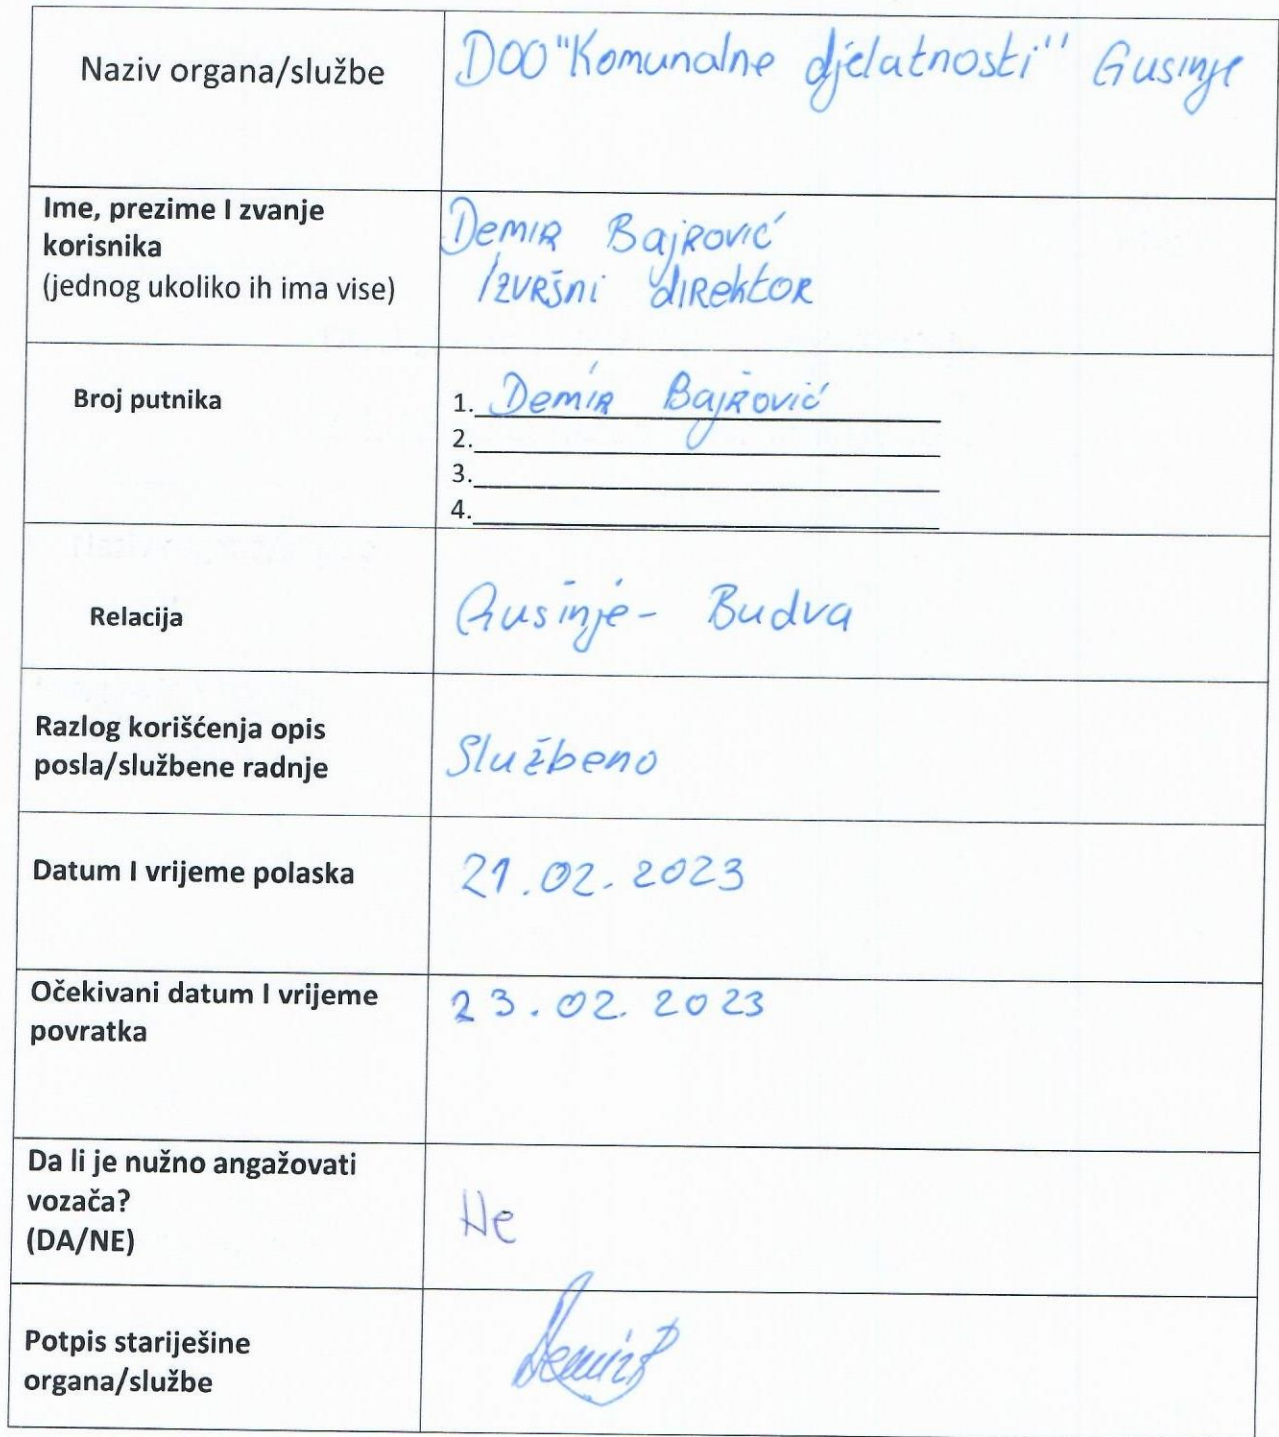 Naziv organa/službe
DOO "Komunalne djelatnosti" Gusinje
Ime, prezime I zvanje
korisnika
(jednog ukoliko ih ima vise)
Demir Bajrović
Izvršni direktor
Broj putnika
1. Demir Bajrović
2.
3.
4.
Relacija
Gusinje - Budva
Razlog korišćenja opis
posla/službene radnje
Službeno
Datum I vrijeme polaska
21.02.2023
Očekivani datum I vrijeme
povratka
23.02.2023
Da li je nužno angažovati
vozača?
(DA/NE)
Ne
Potpis starješine
organa/službe